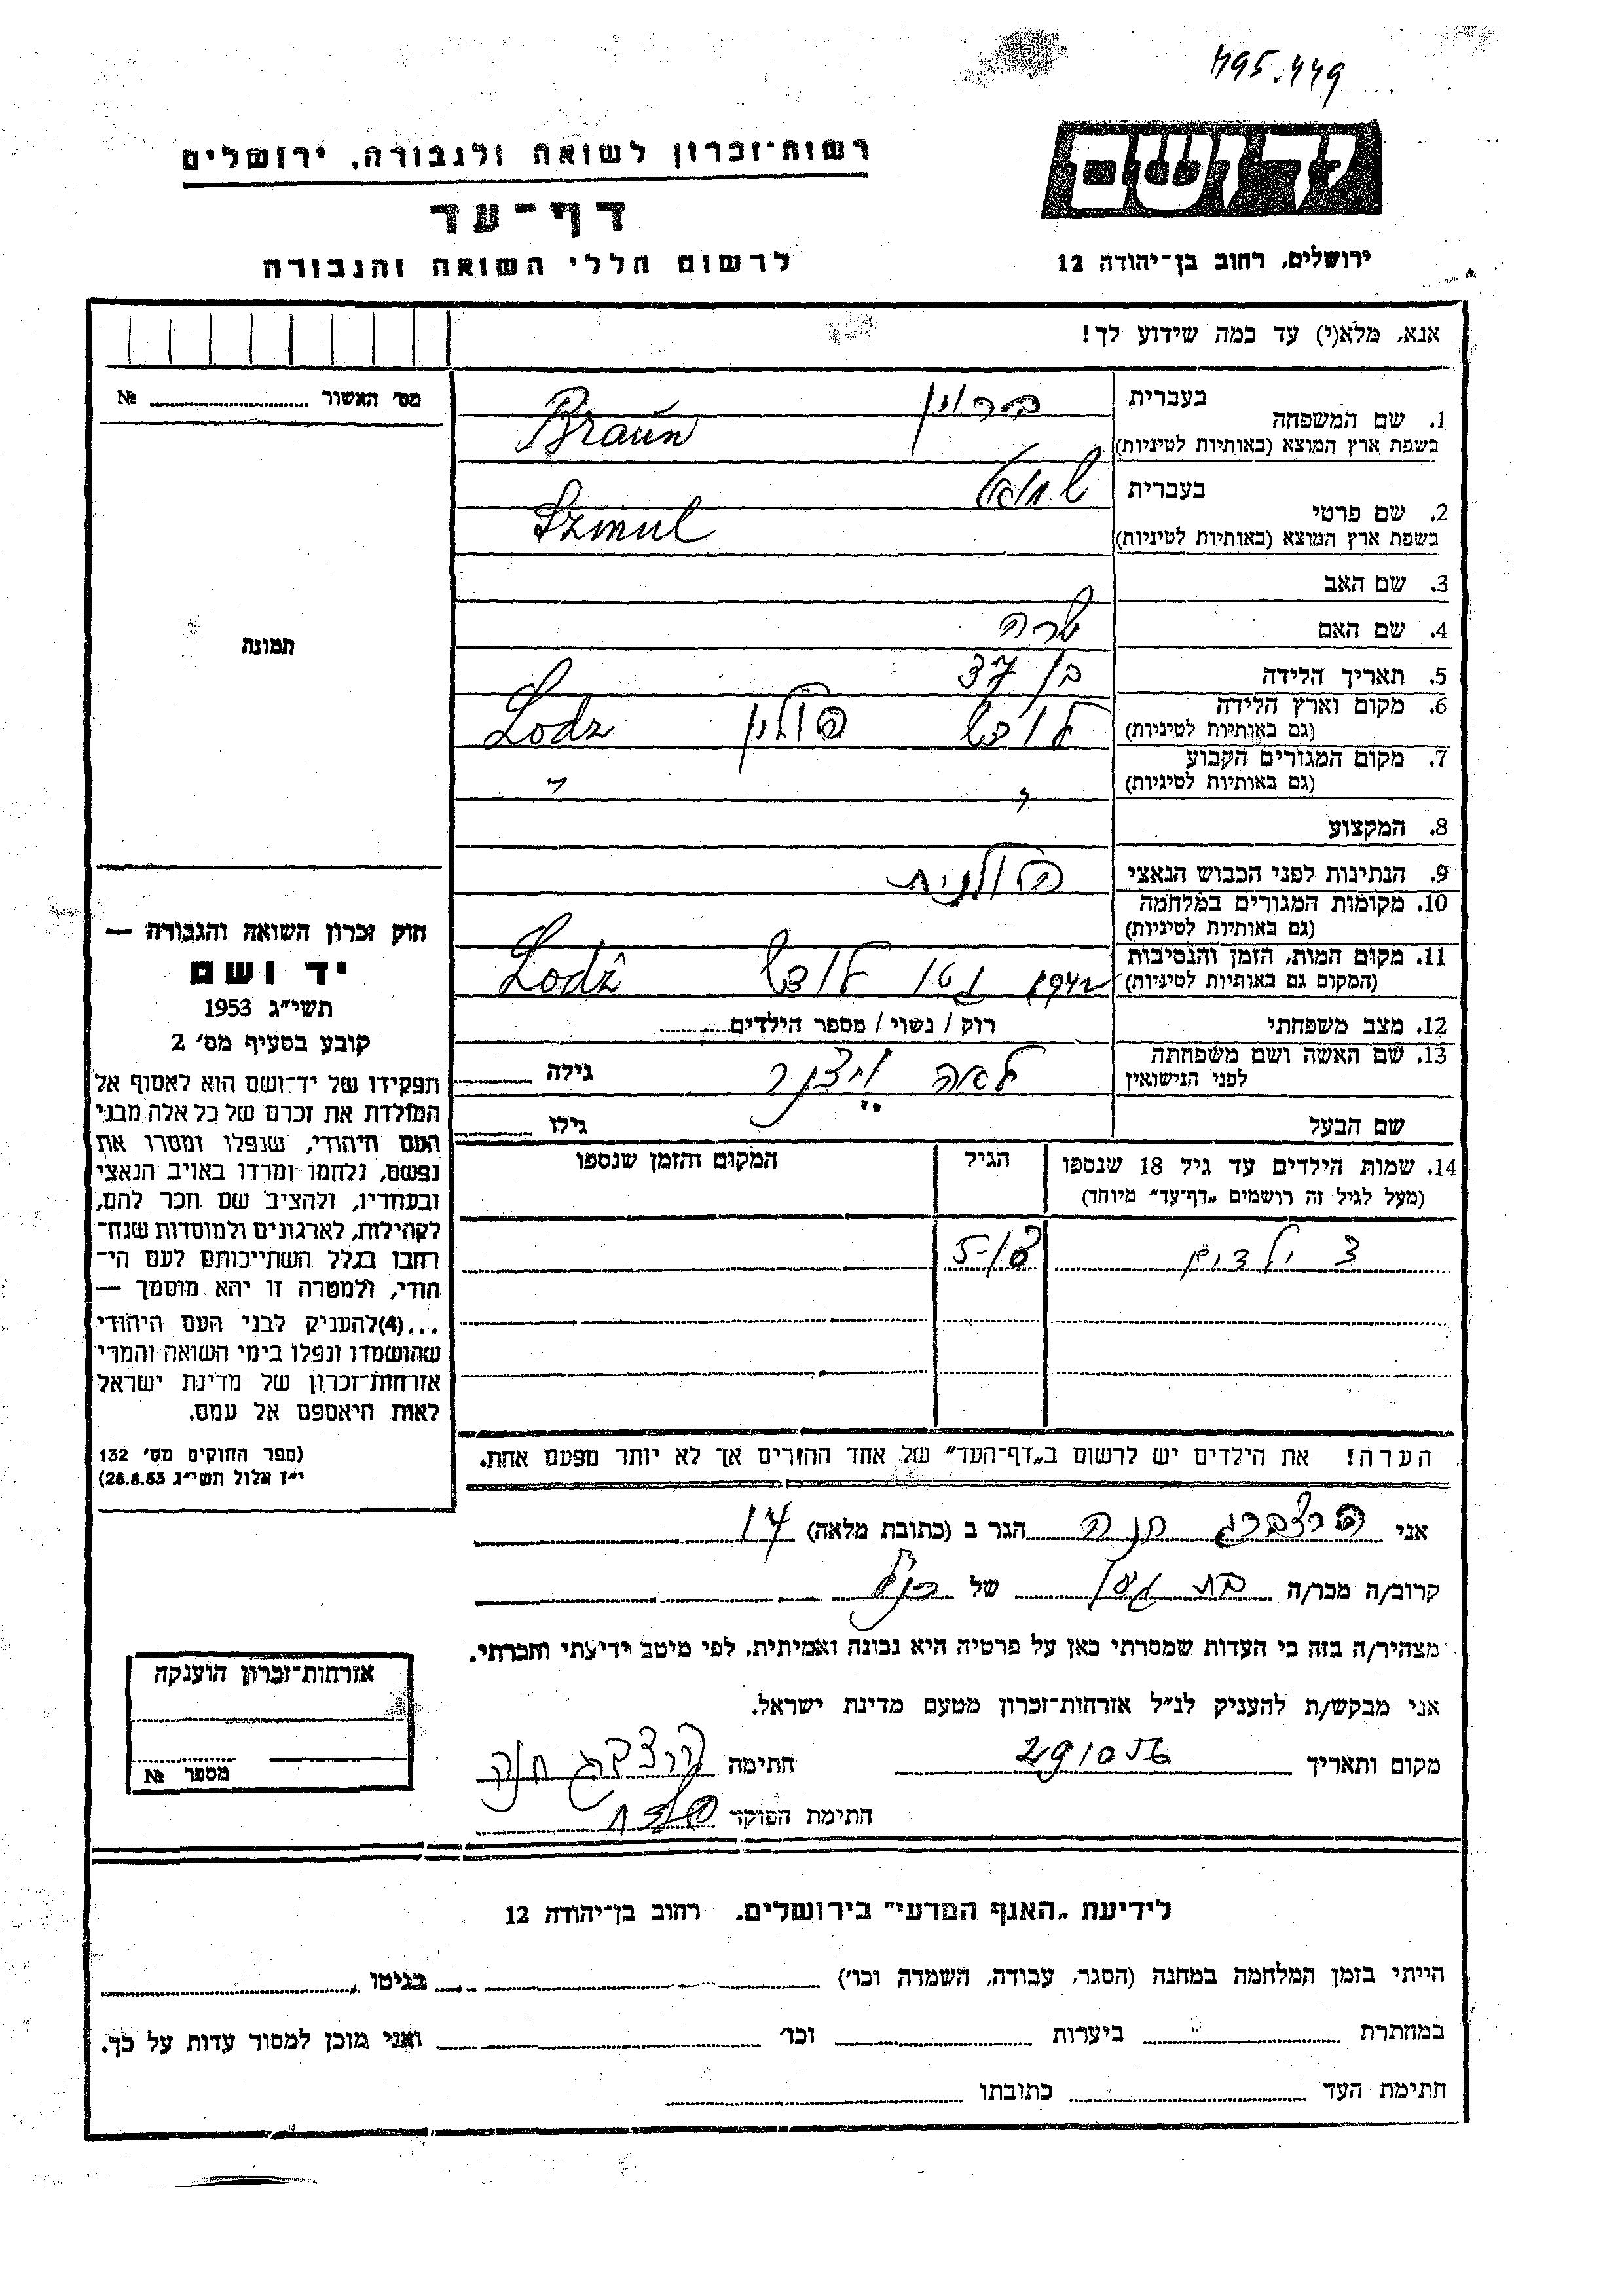 495.449
רשות-זכרון לשואה ולגבורה, ירושלים
דף-עד
לרשום חללי השואה והגבורה
ירושלים, רחוב בן-יהודה 12
אנא, מלא(י) עד כמה שידוע לך!
מס' האשור № 
תמונה
1. שם המשפחה בעברית ברוין
בשפת ארץ המוצא (באותיות לטיניות) Braun
2. שם פרטי בעברית שמואל
בשפת ארץ המוצא (באותיות לטיניות) Szmul
3. שם האב
4. שם האם שרה
5. תאריך הלידה בן 37
6. מקום וארץ הלידה (גם באותיות לטיניות) לודש פולין Lodz
7. מקום המגורים הקבוע (גם באותיות לטיניות) " "
8. המקצוע
9. הנתינות לפני הכבוש הנאצי פולנית
10. מקומות המגורים במלחמה (גם באותיות לטיניות)
11. מקום המות, הזמן והנסיבות (המקום גם באותיות לטיניות) 1942 גטו לודש Lodz
12. מצב משפחתי רוק / נשוי / מספר הילדים
13. שם האשה ושם משפחתה לפני הנישואין לאה גילה
שם הבעל גילו
14. שמות הילדים עד גיל 18 שנספו הגיל המקום והזמן שנספו
(מעל לגיל זה רושמים "דף-עד" מיוחד)
3 ילדים
הערה! את הילדים יש לרשום ב"דף-העד" של אחד ההורים אך לא יותר מפעם אחת.
חוק זכרון השואה והגבורה —
יד ושם
תשי"ג 1953
קובע בסעיף מס' 2
תפקידו של יד-ושם הוא לאסוף אל
המולדת את זכרם של כל אלה מבני
העם היהודי, שנפלו ומסרו את
נפשם, נלחמו ומרדו באויב הנאצי
ובעוזריו, ולהציב שם וזכר להם,
לקהילות, לארגונים ולמוסדות שנח-
רבו בגלל השתייכותם לעם הי-
הודי, ולמטרה זו יהא מוסמך —
...(4)להעניק לבני העם היהודי
שהושמדו ונפלו בימי השואה והמרי
אזרחות-זכרון של מדינת ישראל
לאות היאספם אל עמם.
(ספר החוקים מס' 132
י"ז אלול תשי"ג 28.8.53)
אני חנה הגר ב (כתובת מלאה)
קרוב/ה מכר/ה בת של הנ"ל
מצהיר/ה בזה כי העדות שמסרתי כאן על פרטיה היא נכונה ואמיתית, לפי מיטב ידיעתי והכרתי.
אני מבקש/ת להעניק לנ"ל אזרחות-זכרון מטעם מדינת ישראל.
מקום ותאריך חתימה חנה
חתימת הפוקד
אזרחות-זכרון הוענקה
מספר №
לידיעת "האגף המדעי" בירושלים. רחוב בן-יהודה 12
הייתי בזמן המלחמה במחנה (הסגר, עבודה, השמדה וכו') בגיטו
במחתרת ביערות וכו' ואני מוכן למסור עדות על כך.
חתימת העד כתובתו